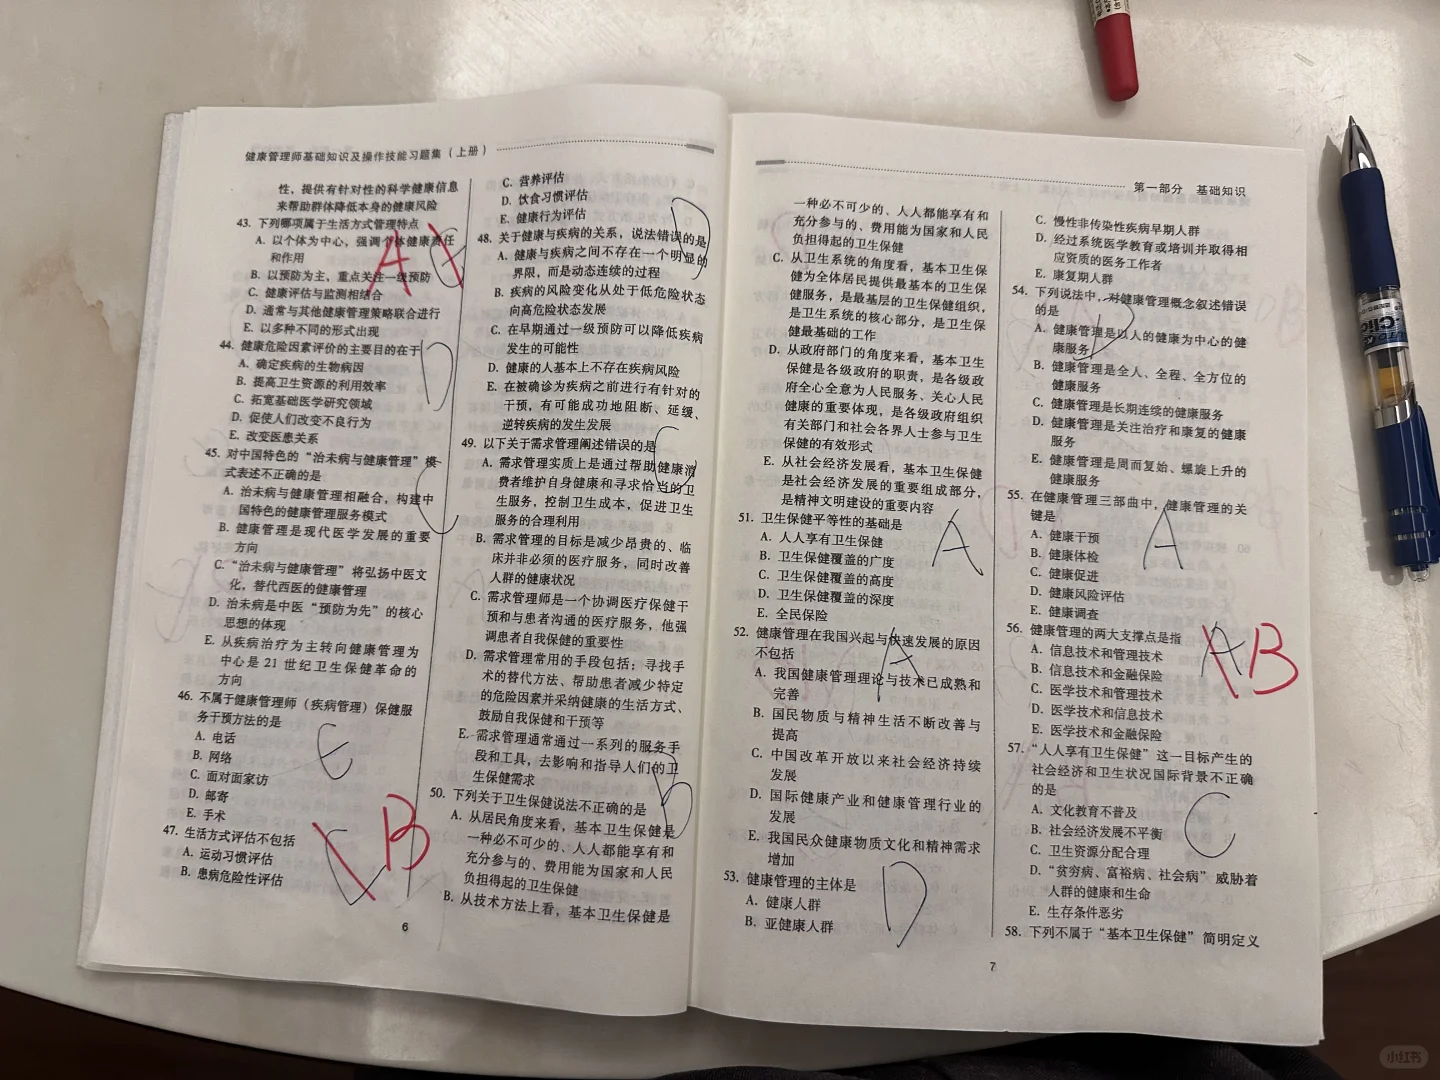 健康管理师基础知识及操作技能习题集(上册)
性、提供有针对性的科学健康信息
来帮助群体降低本身的健康风险
43. 下列哪项属于生活方式管理特点
A. 以个体为中心,强调个体健康责任
和作用
B. 以预防为主、重点关注一级预防
C. 健康评估与监测相结合
D. 通常与其他健康管理策略联合进行
E. 以多种不同的形式出现
A
44. 健康危险因素评价的主要目的在于
A. 确定疾病的生物病因
B. 提高卫生资源的利用效率
C. 拓宽基础医学研究领域
D. 促使人们改变不良行为
E. 改变医患关系
D
45. 对中国特色的“治未病与健康管理”模
式表述不正确的是
A. 治未病与健康管理相融合,构建中
国特色的健康管理服务模式
B. 健康管理是现代医学发展的重要
方向
C. “治未病与健康管理”将弘扬中医文
化,替代西医的健康管理
D. 治未病是中医“预防为先”的核心
思想的体现
E. 从疾病治疗为主转向健康管理为
中心是 21 世纪卫生保健革命的
方向
C
46. 不属于健康管理师(疾病管理)保健服
务干预方法的是
A. 电话
B. 网络
C. 面对面家访
D. 邮寄
E. 手术
E
47. 生活方式评估不包括
A. 运动习惯评估
B. 患病危险性评估
B
6
C. 营养评估
D. 饮食习惯评估
E. 健康行为评估
48. 关于健康与疾病的关系,说法错误的是
A. 健康与疾病之间不存在一个明显的
界限,而是动态连续的过程
B. 疾病的风险变化从处于低危险状态
向高危险状态发展
C. 在早期通过一级预防可以降低疾病
发生的可能性
D. 健康的人基本上不存在疾病风险
E. 在被确诊为疾病之前进行有针对的
干预,有可能成功地阻断、延缓、
逆转疾病的发生发展
D
49. 以下关于需求管理阐述错误的是
A. 需求管理实质上是通过帮助健康消
费者维护自身健康和寻求恰当的卫
生服务,控制卫生成本,促进卫生
服务的合理利用
B. 需求管理的目标是减少昂贵的、临
床并非必须的医疗服务,同时改善
人群的健康状况
C. 需求管理师是一个协调医疗保健干
预和与患者沟通的医疗服务,他强
调患者自我保健的重要性
D. 需求管理常用的手段包括:寻找手
术的替代方法、帮助患者减少特定
的危险因素并采纳健康的生活方式、
鼓励自我保健和干预等
E. 需求管理通常通过一系列的服务手
段和工具,去影响和指导人们的卫
生保健需求
C
50. 下列关于卫生保健说法不正确的是
A. 从居民角度来看,基本卫生保健是
一种必不可少的、人人都能享有和
充分参与的、费用能为国家和人民
负担得起的卫生保健
B. 从技术方法上看,基本卫生保健是
B
第一部分 基础知识
一种必不可少的、人人都能享有和
充分参与的、费用能为国家和人民
负担得起的卫生保健
C. 从卫生系统的角度看,基本卫生保
健为全体居民提供最基本的卫生保
健服务,是最基层的卫生保健组织,
是卫生系统的核心部分,是卫生保
健最基础的工作
D. 从政府部门的角度来看,基本卫生
保健是各级政府的职责,是各级政
府全心全意为人民服务、关心人民
健康的重要体现,是各级政府组织
有关部门和社会各界人士参与卫生
保健的有效形式
E. 从社会经济发展看,基本卫生保健
是社会经济发展的重要组成部分,
是精神文明建设的重要内容
51. 卫生保健平等性的基础是
A. 人人享有卫生保健
B. 卫生保健覆盖的广度
C. 卫生保健覆盖的高度
D. 卫生保健覆盖的深度
E. 全民保险
A
52. 健康管理在我国兴起与快速发展的原因
不包括
A. 我国健康管理理论与技术已成熟和
完善
B. 国民物质与精神生活不断改善与
提高
C. 中国改革开放以来社会经济持续
发展
D. 国际健康产业和健康管理行业的
发展
E. 我国民众健康物质文化和精神需求
增加
A
53. 健康管理的主体是
A. 健康人群
B. 亚健康人群
D
C. 慢性非传染性疾病早期人群
D. 经过系统医学教育或培训并取得相
应资质的医务工作者
E. 康复期人群
54. 下列说法中,对健康管理概念叙述错误
的是
A. 健康管理是以人的健康为中心的健
康服务
B. 健康管理是全人、全程、全方位的
健康服务
C. 健康管理是长期连续的健康服务
D. 健康管理是关注治疗和康复的健康
服务
E. 健康管理是周而复始、螺旋上升的
健康服务
D
55. 在健康管理三部曲中,健康管理的关
键是
A. 健康干预
B. 健康体检
C. 健康促进
D. 健康风险评估
E. 健康调查
A
56. 健康管理的两大支撑点是指
A. 信息技术和管理技术
B. 信息技术和金融保险
C. 医学技术和管理技术
D. 医学技术和信息技术
E. 医学技术和金融保险
A B
57. “人人享有卫生保健”这一目标产生的
社会经济和卫生状况国际背景不正确
的是
A. 文化教育不普及
B. 社会经济发展不平衡
C. 卫生资源分配合理
D. “贫穷病、富裕病、社会病”威胁着
人群的健康和生命
E. 生存条件恶劣
C
58. 下列不属于“基本卫生保健”简明定义
7
小红书